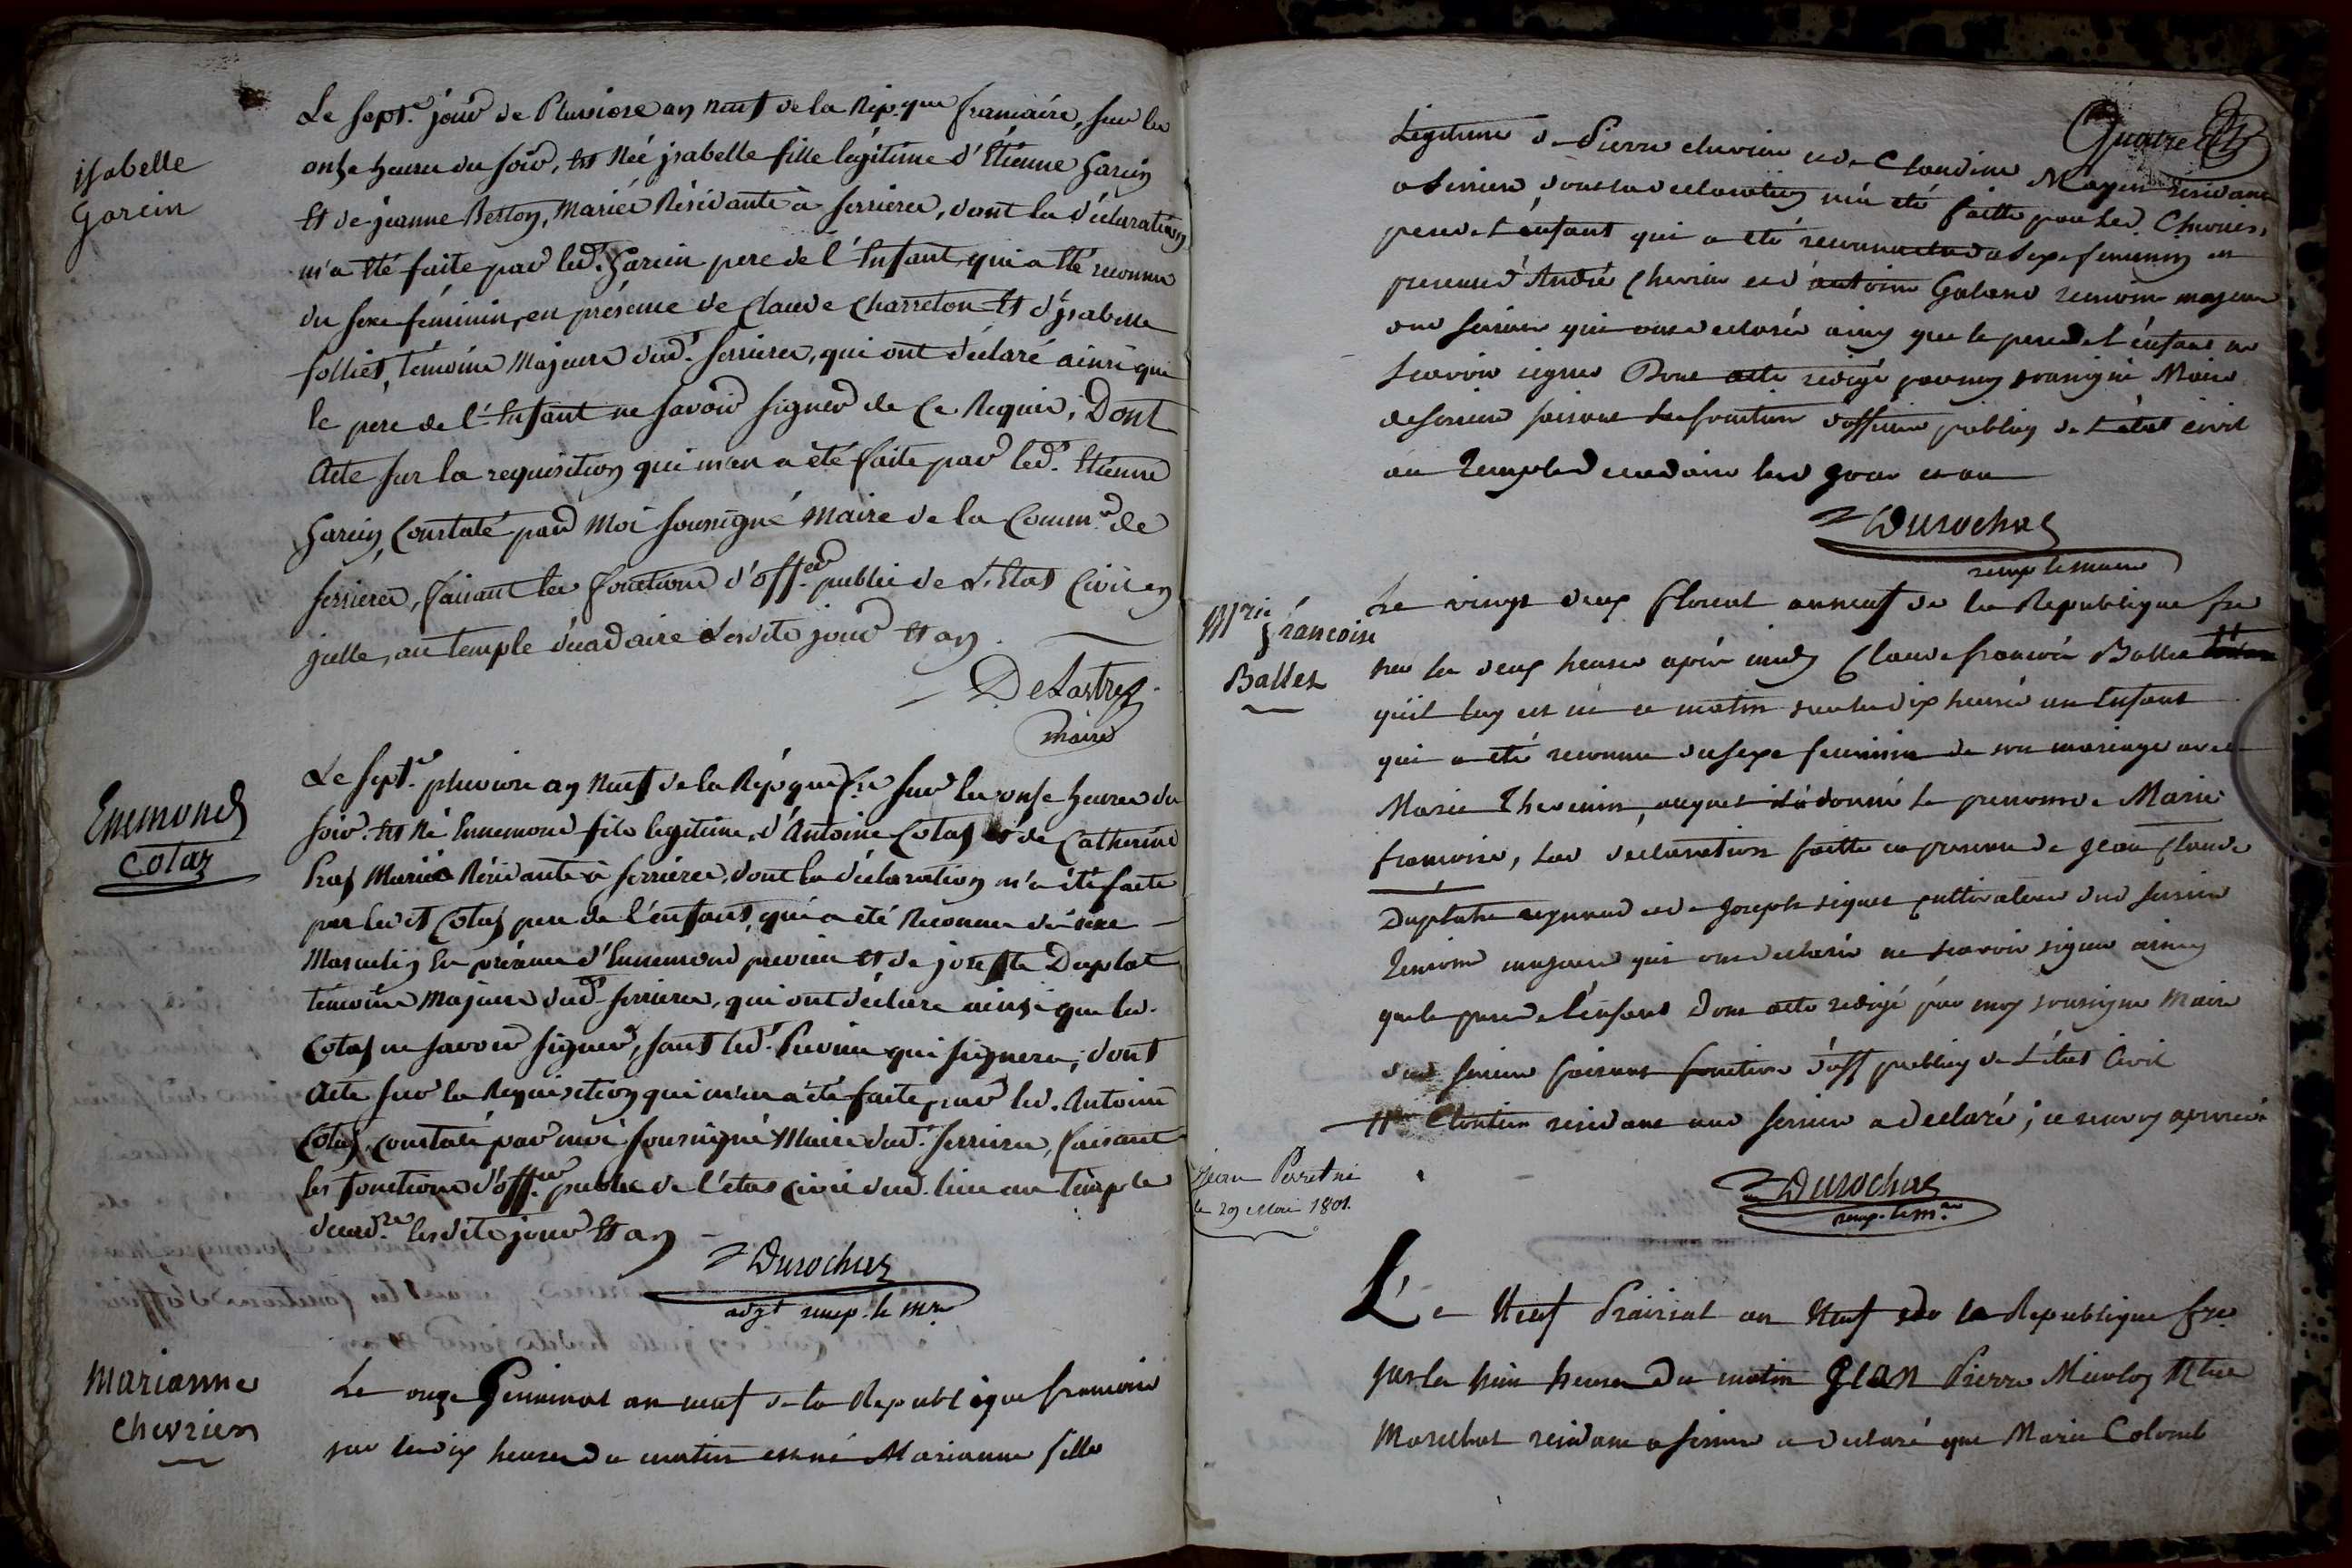 isabelle
Garcin
Le sept.e jour de Pluviose an neuf de la Rép.que francaise, sur les
onze heures du soir, est née isabelle fille légitime d'Etienne Garcin
Et de jeanne Besson, Mariés Résidants à serrieres, dont la déclaration
m'a été faite par led.t Garcin pere de l'Enfant, qui a été reconnu
du sexe féminin, en présence de Claude Charreton Et d'isabelle
folliet, témoins Majeurs dud.t serrieres, qui ont déclaré ainsi que
le père de l'Enfant ne savoir signer de ce Requis, Dont
Acte sur la requisition qui m'en a été faite par led.t Etienne
Garcin, Constaté par Moi soussigné Maire de la Comm.e de
serrieres, faisant les fonctions d'off.er public de L'Etat Civil en
jcelle, au temple décadaire Lesdits jour Et an.
DeLastre
maire
Enemond
Cotaz
Le sept.e pluviose an Neuf de la Répque fr.se sur les onze heures du
soir. Est Né Ennemond fils legitime d'Antoine Cotaz et de Catherine
Praz Mariés Résidants à serrieres, dont la déclaration m'a été faite
par ledit Cotaz pere de l'enfant, qui a été Reconnu du sexe
Masculin En présence d'Ennemond Et de joseph Duplat
témoins Majeurs dud.t serrieres, qui ont déclaré ainsi que led.
Cotaz ne savoir signer, sauf led.t qui signera, dont
Acte sur la Requisition qui m'en a été faite par led. Antoine
Cotaz, Constaté par moi soussigné Maire dud.t serrieres, faisant
les fonctions d'off.er public de l'état civil dud. lieu au temple
décad.re lesdits jour Et an
Durochas
adjt remp. le mre
Marianne
Chevrier
Le onze Germinal an neuf de la Republique francoise
sur les dix heures du matin est né Marianne fille
Quatre
Legitime de Pierre chevrier et de Claudine Mayen residants
a serriere dont la declaration m'a été faitte par led. Chevrier
pere de L'enfant qui a été reconnu du sexe feminin en
presence d'André Chevrier et d'antoine Galand temoins majeurs
dud serriere qui ont declarés ainsy que le pere de l'énfant ne
scavoir signer Dont acte redigé par moy soussigné Maire
de serriere faisant les fonctions d'officier publicq de L'état civil
au Temple decadaire led jour et an
Durochas
remp le maire
Mrie francoise
Ballet
Le vingt deux floreal an neuf de la Republique fre
sur les deux heures après midy Claude francois Ballet
qu'il luy est né ce matin sur les dix heures un Enfant
qui a été reconnu du sexe feminin de son mariage avec
Marie Thevenin, auquel il a donné le prenom de Marie
francoise, Lad declaration faitte en presence de jean Claude
Duplatre et de joseph cultivateur dud serriere
Temoins majeurs qui ont declarés ne scavoir signer ainsy
que le pere de l'énfant Dont acte redigé par moy soussigné Maire
dud serriere faisant fonction d'off publicq de L'état Civil
residant aud serriere a declaré; ce renvoy approuvé
Durochas
remp. le m.re
Jean Perret né
le 29 Mai 1801.
Le Neuf Prairial an Neuf de la Republique fre
sur les huit heures du matin Jean Pierre
Marechal residant a serriere a declaré que Marie Colomb